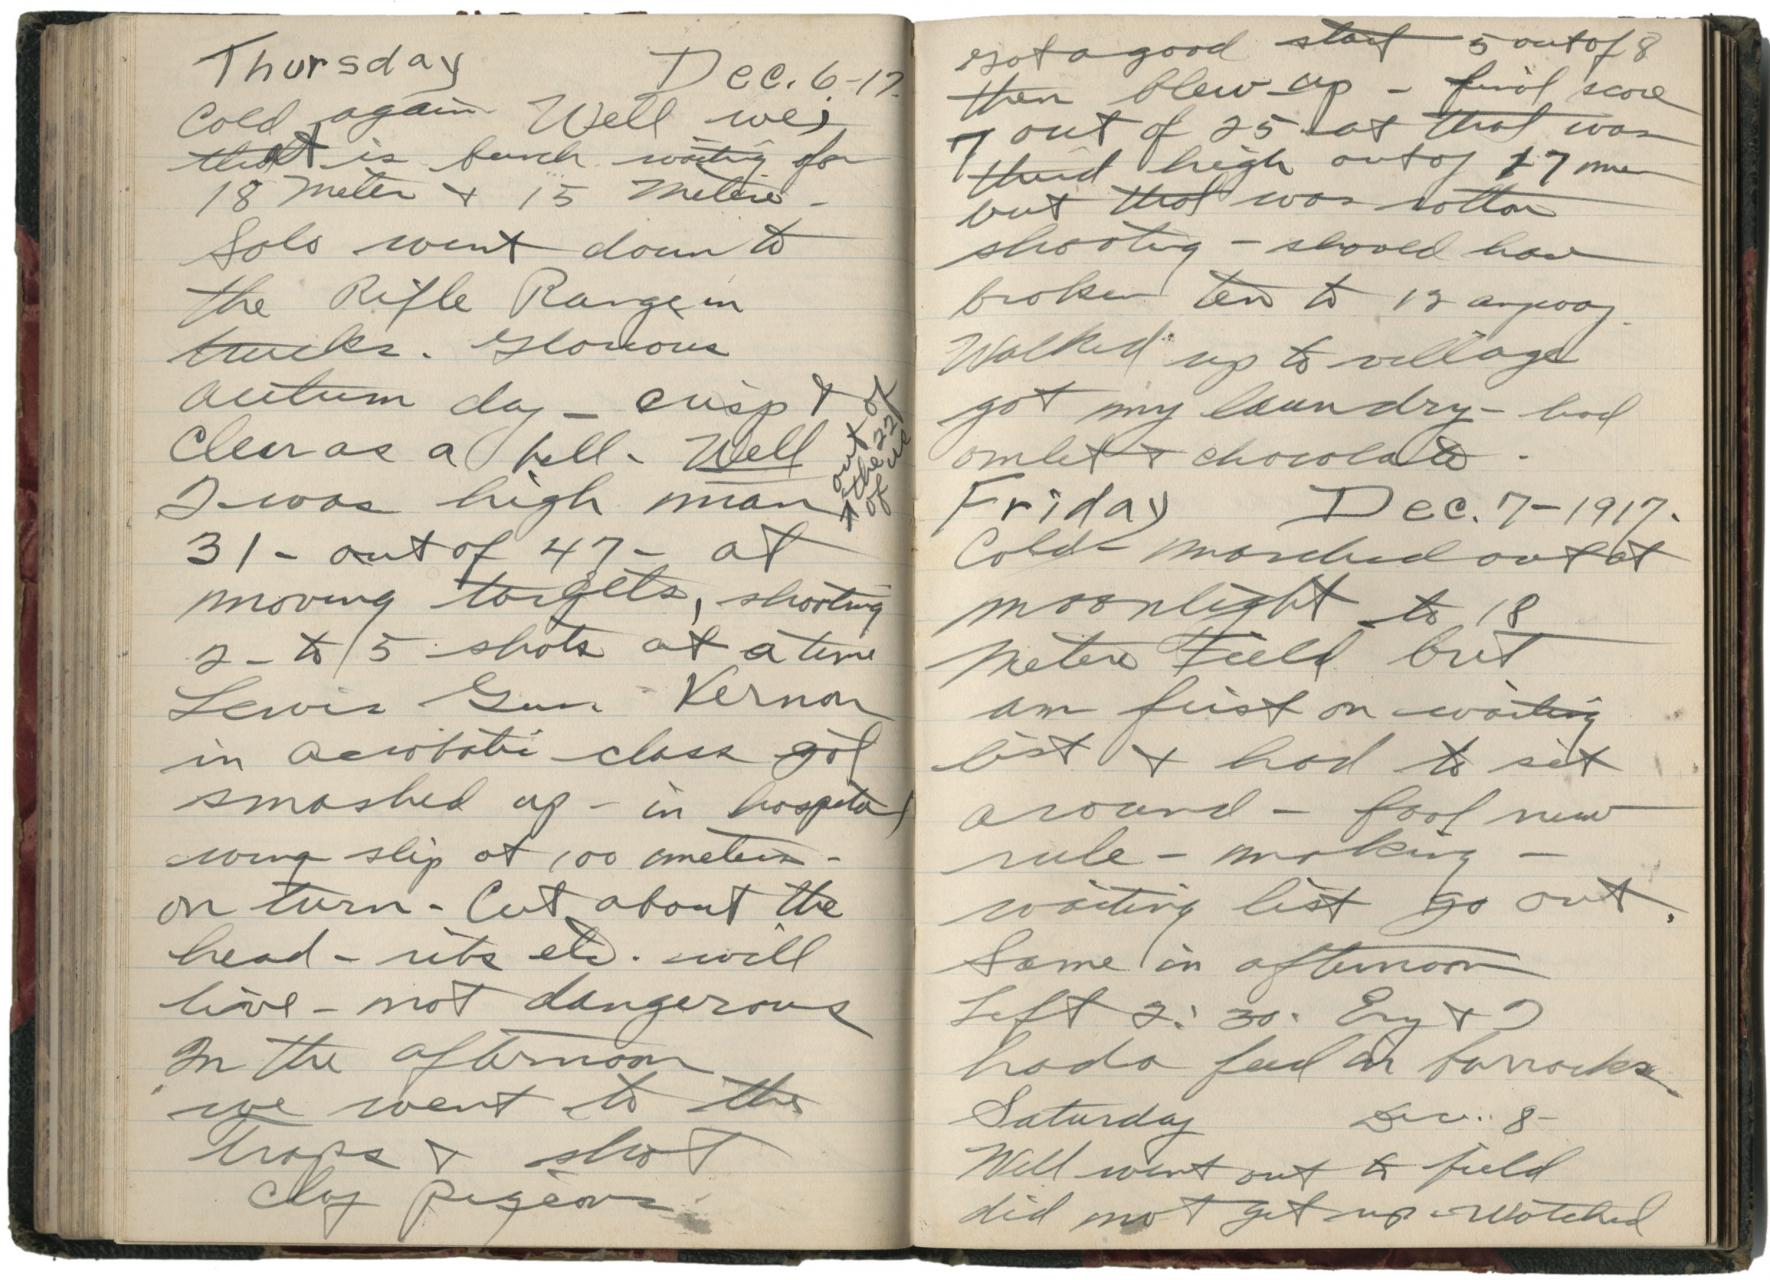 Thursday Dec. 6-17.
Cold again Well we,
that is bunch waiting for
18 Meter & 15 Metere -
Solo went down to
the Rifle Range in
trucks. Glorious
autum day - crisp &
Clear as a bell - Well
I was high man
out of
the 22
of us
31 - out of 47 - at
moving targets, shooting
2 - to 5 shots at a time
Lewis Gun. Vernon
in acrobatic class got
smashed up - in hospital
wing slip at 100 meters -
on turn - Cut about the
head - ribs etc. will
live - not dangerous
In the afternoon
we went to the
Traps & shot
Clay pigeons.
Got a good start 5 out of 8
then blew up - final score
7 out of 25 at that was
third high out of 17 men
but that was rotten
shooting - should have
broken ten to 12 anyway.
Walked up to village
got my laundry - had
omlet & chocolate.
Friday Dec. 7-1917.
Cold - marched out at
moonlight to 18
Metere Field but
am first on waiting
list & had to sit
around - fool new
rule - making -
waiting list go out.
Same in afternoon
Left 2:30. Ery & I
had a feed in barracks.
Saturday Dec. 8-
Well went out to field
did not get up - Watched